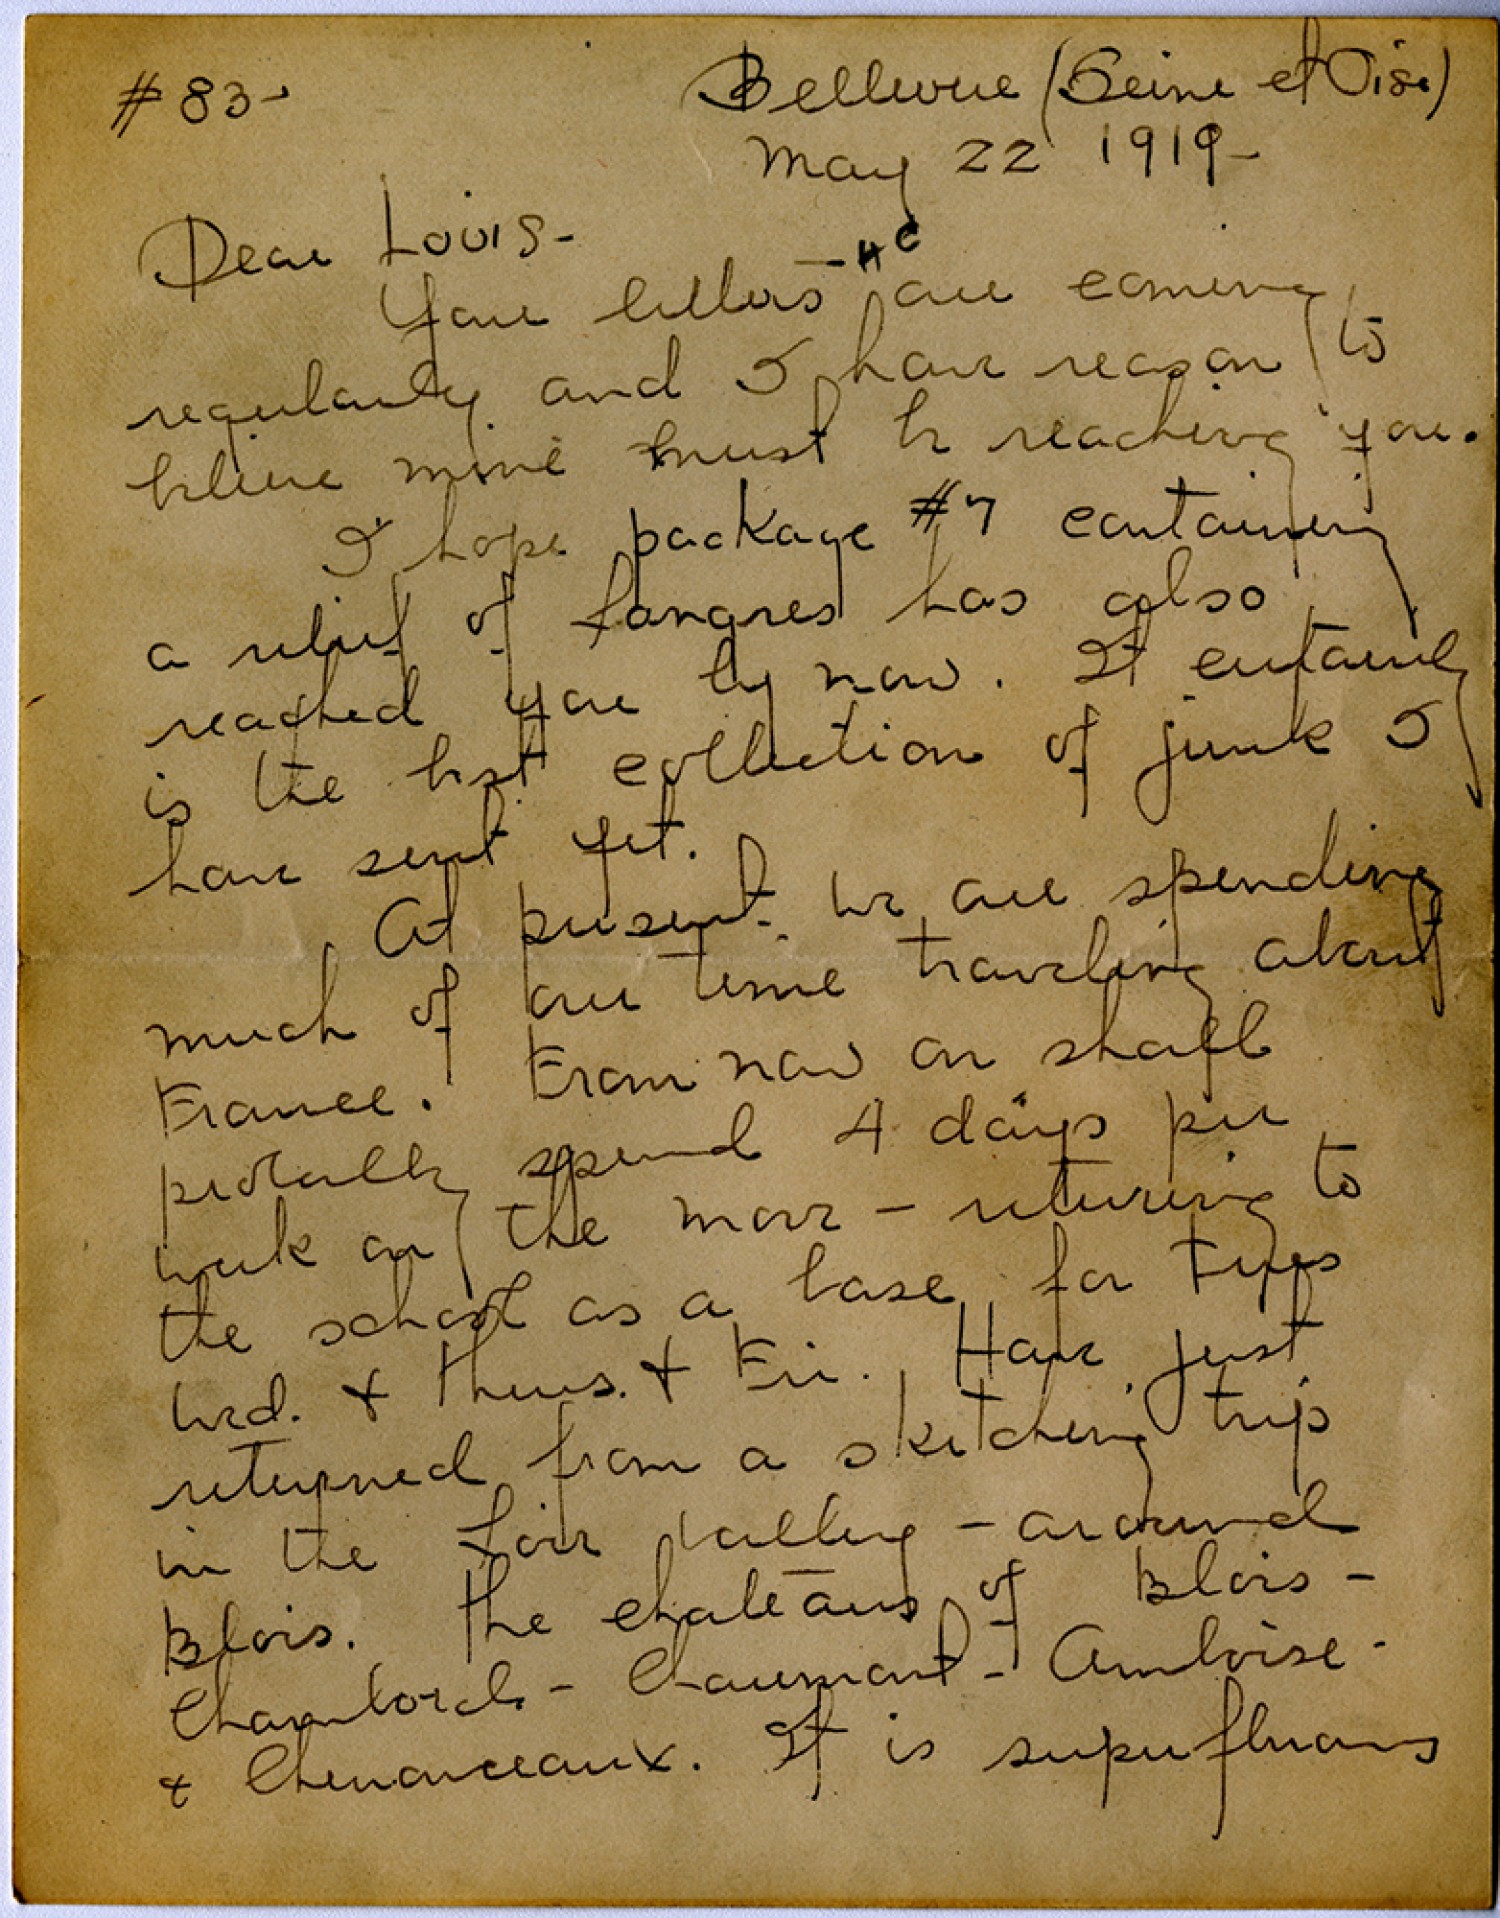 #83-
Bellevue (Seine et Oise)
May 22 1919-
Dear Louis-
Your letters are coming
regularly and I have reason to
believe mine must be reaching you.
I hope package #7 containing
a relief of Langres has also
reached you by now. It certainly
is the best collection of junk I
have sent yet.
At present we are spending
much of our time traveling about
France. From now on shall
probably spend 4 days per
week on the move - returning to
the school as a base for Tues
Wed. & Thurs. & Fri. Have just
returned from a sketching trip
in the Loir valley - around
Blois. The chateaus of Blois -
Chambord - Chaumont - Amboise -
& Chenonceaux. It is superfluous